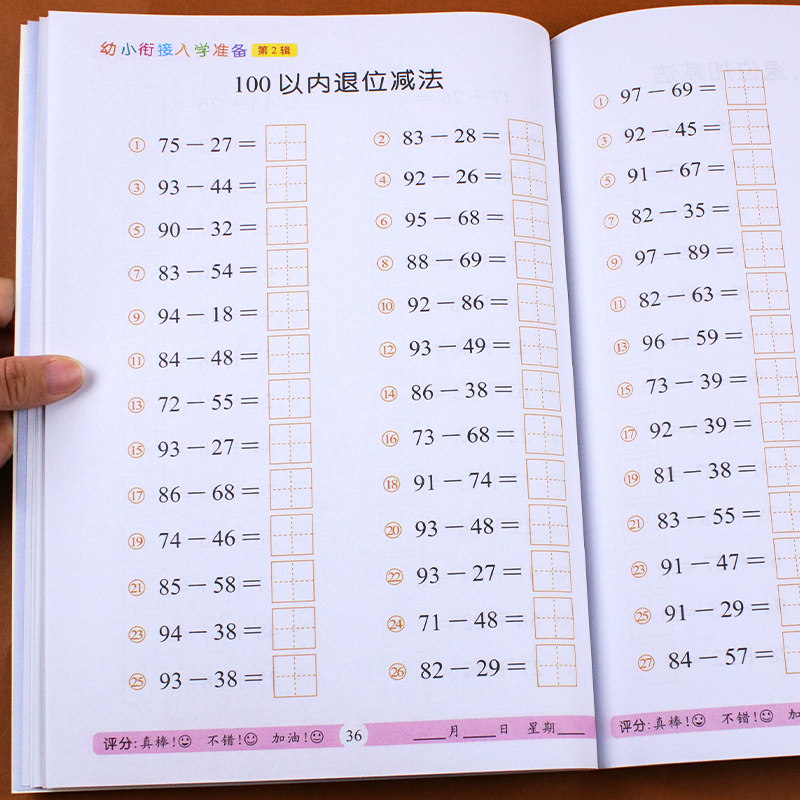 幼小衔接入学准备 第2辑
100以内退位减法
① 75－27＝ ② 83－28＝
③ 93－44＝ ④ 92－26＝
⑤ 90－32＝ ⑥ 95－68＝
⑦ 83－54＝ ⑧ 88－69＝
⑨ 94－18＝ ⑩ 92－86＝
⑪ 84－48＝ ⑫ 93－49＝
⑬ 72－55＝ ⑭ 86－38＝
⑮ 93－27＝ ⑯ 73－68＝
⑰ 86－68＝ ⑱ 91－74＝
⑲ 74－46＝ ⑳ 93－48＝
㉑ 85－58＝ ㉒ 93－27＝
㉓ 94－38＝ ㉔ 71－48＝
㉕ 93－38＝ ㉖ 82－29＝
评分:真棒! 不错! 加油! 36 ____月____日 星期____
① 97－69＝
③ 92－45＝
⑤ 91－67＝
⑦ 82－35＝
⑨ 97－89＝
⑪ 82－63＝
⑬ 96－59＝
⑮ 73－39＝
⑰ 92－39＝
⑲ 81－38＝
㉑ 83－55＝
㉓ 91－47＝
㉕ 91－29＝
㉗ 84－57＝
评分:真棒! 不错! 加